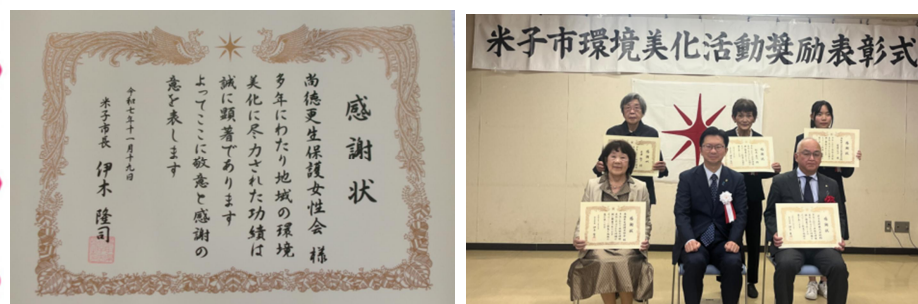 感謝状
尚徳更生保護女性会 様
多年にわたり地域の環境
美化に尽力された功績は
誠に顕著であります
よってここに敬意と感謝の
意を表します
令和七年十一月十九日
米子市長 伊木 隆司
米子市環境美化活動奨励表彰式